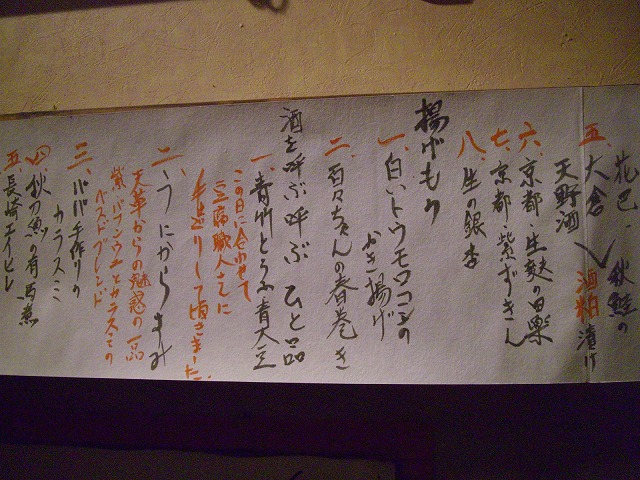 花巴、
秋鮭の
五、大倉
酒粕漬け
天野酒
六、京都・生麩の田楽
七、京都・紫ずきん
八、生の銀杏
揚げもの
一、白いトウモロコシの
かき揚げ
二、百々ちゃんの春巻き
酒を呼ぶ呼ぶ ひと品
一、青竹とうふ 青大豆
この日に合わせて
豆腐職人さんに
手造りして頂きました
二、うにからすみ
天草からの魅惑の一品
紫バフンウニとカラスミの
ベストブレンド
三、ババ手作りの
カラスミ
四、秋刀魚の有馬煮
五、長崎エイヒレ